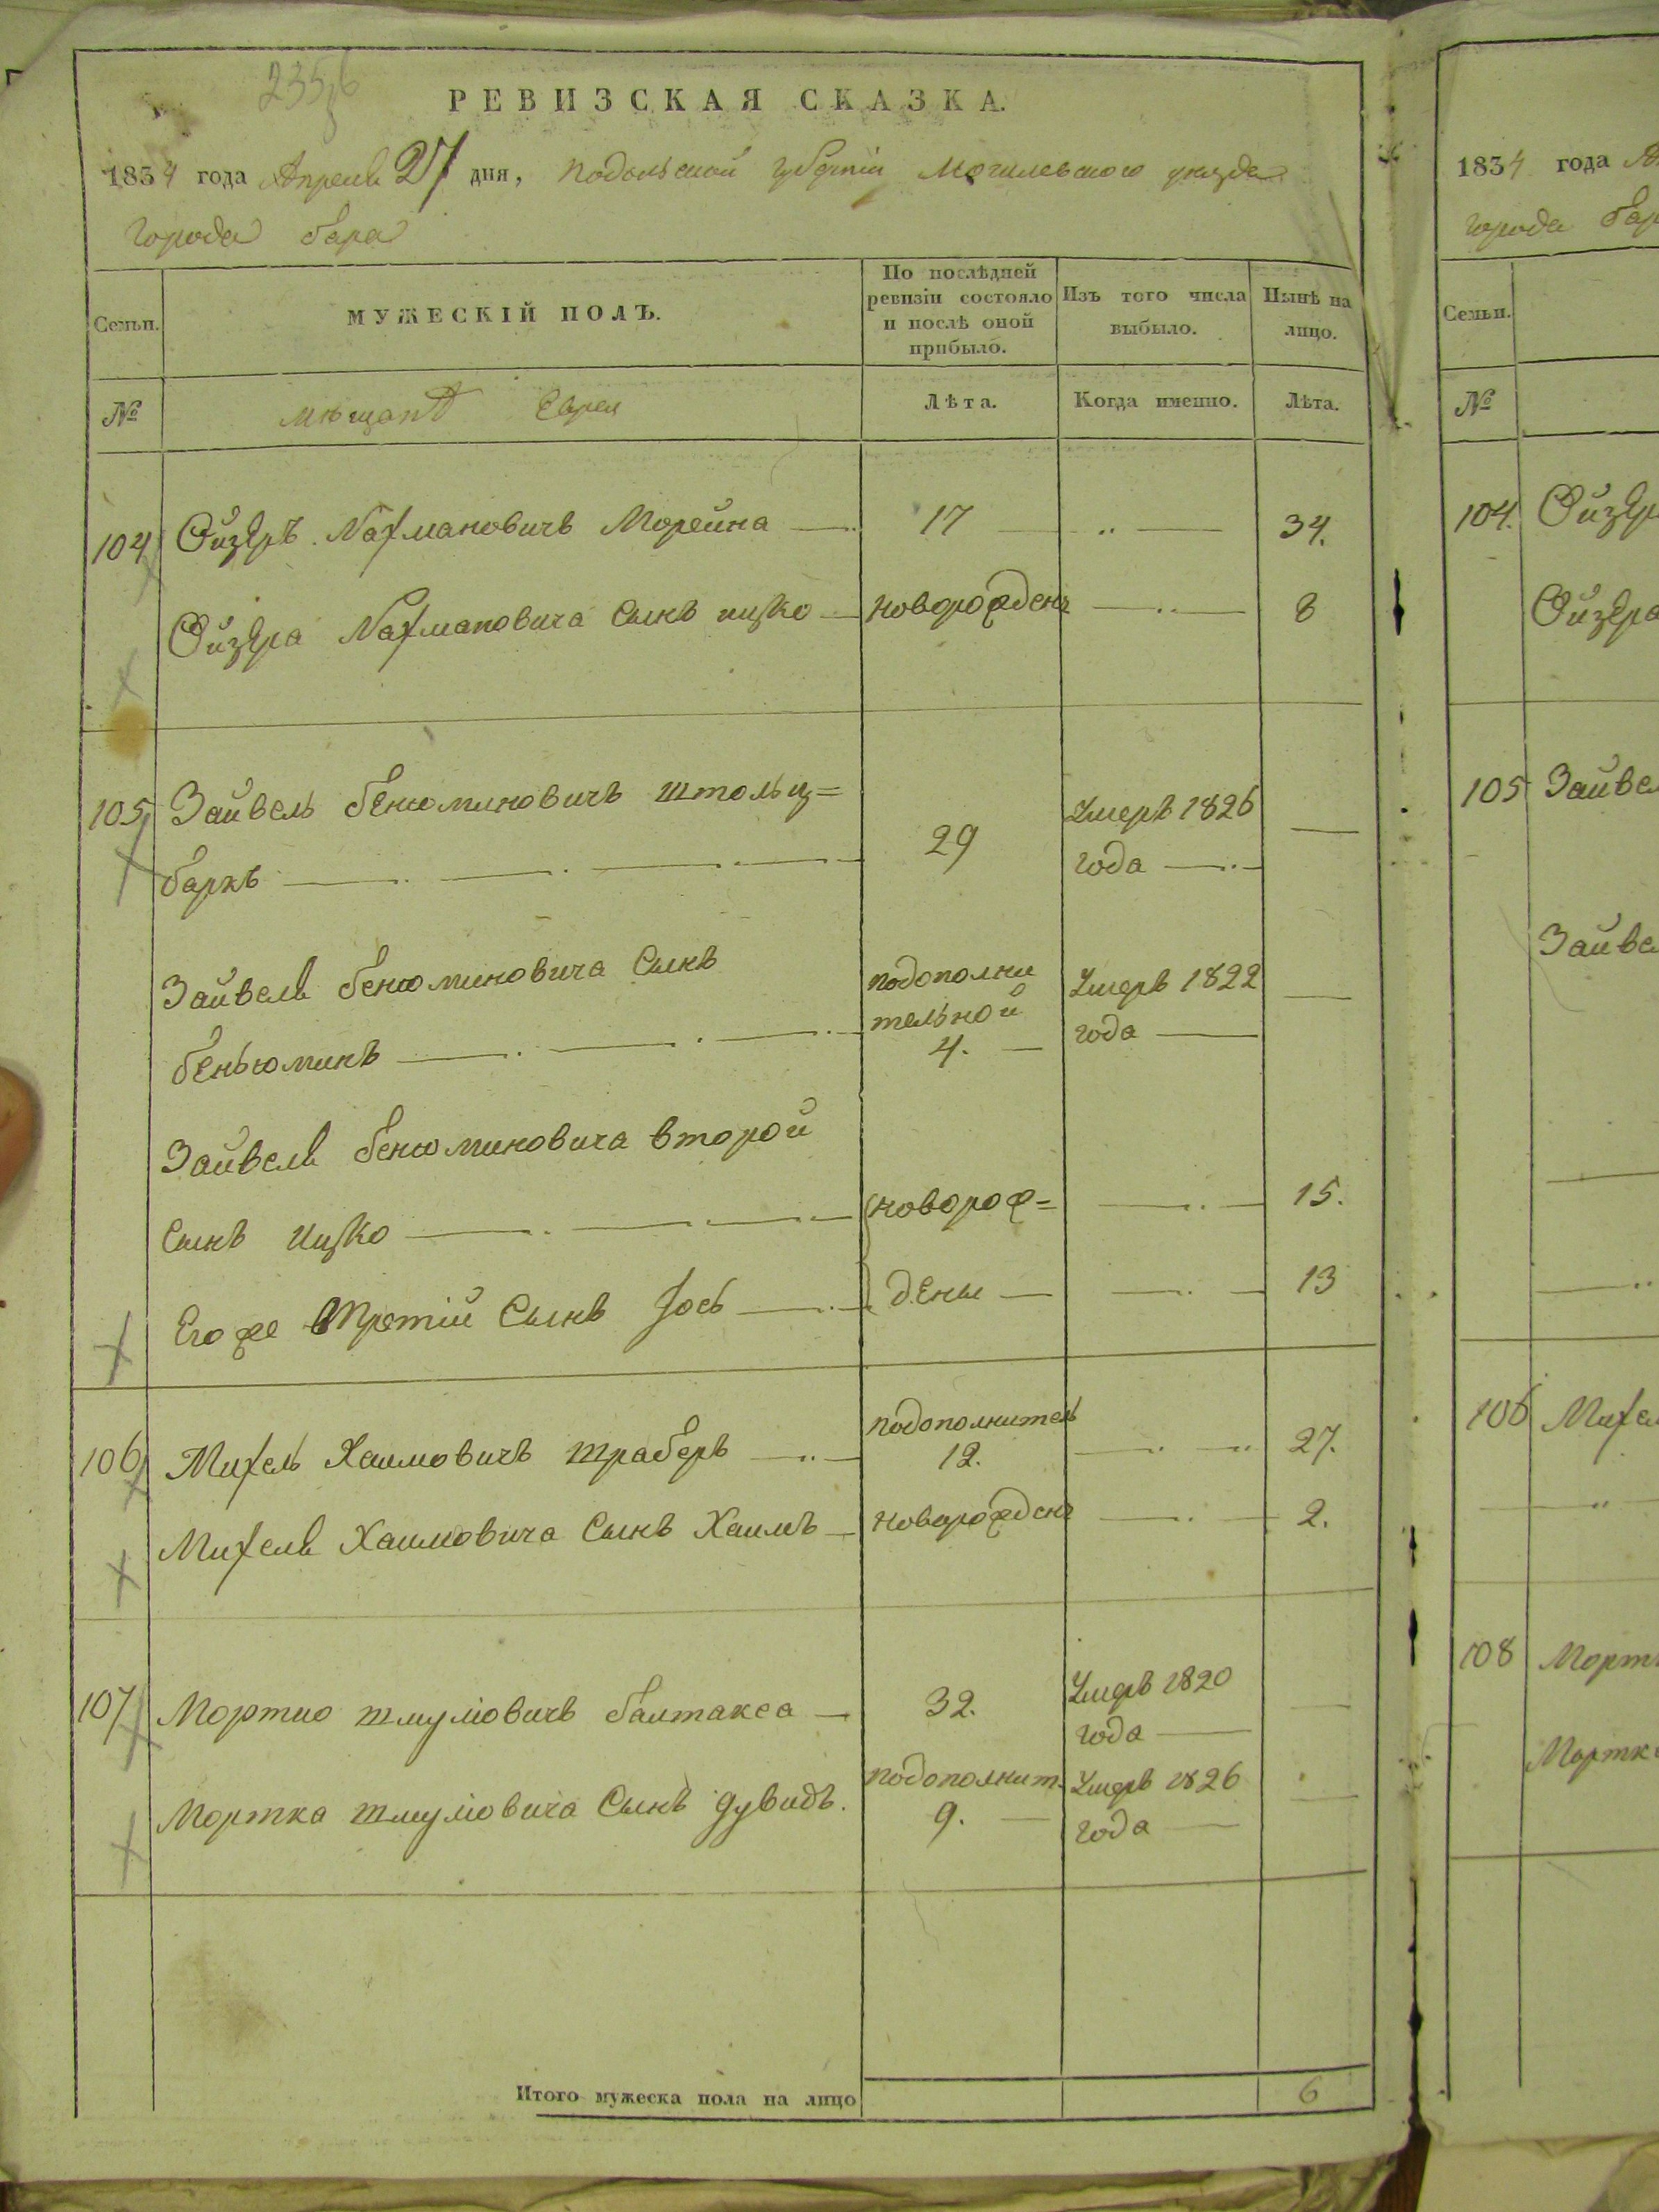 2356
РЕВИЗСКАЯ СКАЗКА.
1834 года Апреля 27 дня, подольской губерніи Могилевского уезда
города бара
Семьи.
МУЖЕСКІЙ ПОЛЪ.
По послѣдней ревизіи состояло и послѣ оной прибыло.
Изъ того числа выбыло.
Нынѣ на лицо.
№
мещанъ Евреи
Лѣта.
Когда именно.
Лѣта.
104 Ойзеръ Нахмановичъ Морейна 17 34.
Ойзера Нахмановича Сынъ ицко новорожденъ 8
105 Зайвель бенюминовичъ штольц=
баркъ 29 Умеръ 1826 года
Зайвеля бенюминовича Сынъ
беньюминъ подополнительной 4. Умеръ 1822 года
Зайвеля бенюминовича второй
Сынъ ицко новорож= 15.
Его же третій Сынъ Іось дены 13
106 Михель Хаимовичъ траберъ подополнитель 12. 27.
Михеля Хаимовича Сынъ Хаимъ новорожденъ 2.
107 Мортко шмуліовичъ балтакса 32. Умеръ 1820 года
Мортка шмуліовича Сынъ дувидъ. подополнит. 9. Умеръ 1826 года
Итого мужеска пола на лицо 6
1834 года
города бар
Семьи.
№
104. Ойзер
Ойзера
105 Зайвел
Зайвел
106 Михел
108 Морт
Мортк